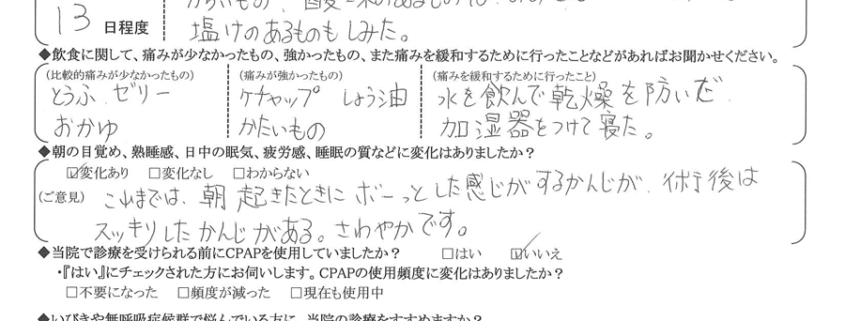 13 日程度
塩けのあるものもしみた。
◆飲食に関して、痛みが少なかったもの、強かったもの、また痛みを緩和するために行ったことなどがあればお聞かせください。
(比較的痛みが少なかったもの) (痛みが強かったもの) (痛みを緩和するために行ったこと)
とうふ ゼリー ケチャップ しょう油 水を飲んで乾燥を防いだ.
おかゆ かたいもの 加湿器をつけて寝た。
◆朝の目覚め、熟睡感、日中の眠気、疲労感、睡眠の質などに変化はありましたか?
☑変化あり □変化なし □わからない
(ご意見) これまでは、朝起きたときにボーっとした感じがするかんじが、術後は
スッキリしたかんじがある。さわやかです。
◆当院で診療を受けられる前にCPAPを使用していましたか? □はい ☑いいえ
・『はい』にチェックされた方にお伺いします。CPAPの使用頻度に変化はありましたか?
□不要になった □頻度が減った □現在も使用中
◆いびきや無呼吸症候群で悩んでいる方に、当院の診療をすすめますか?